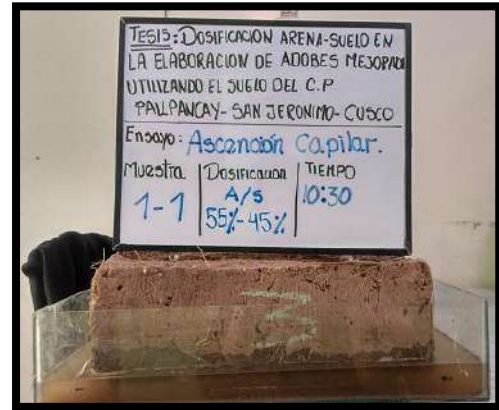 TESIS: DOSIFICACION ARENA-SUELO EN
LA ELABORACION DE ADOBES MEJORADO
UTILIZANDO EL SUELO DEL C.P
PAILPANCAY- SAN JERONIMO- CUSCO
Ensayo: Ascención Capilar.
Muestra Dosificacion TIEMPO
1-1 A/S 10:30
55%-45%